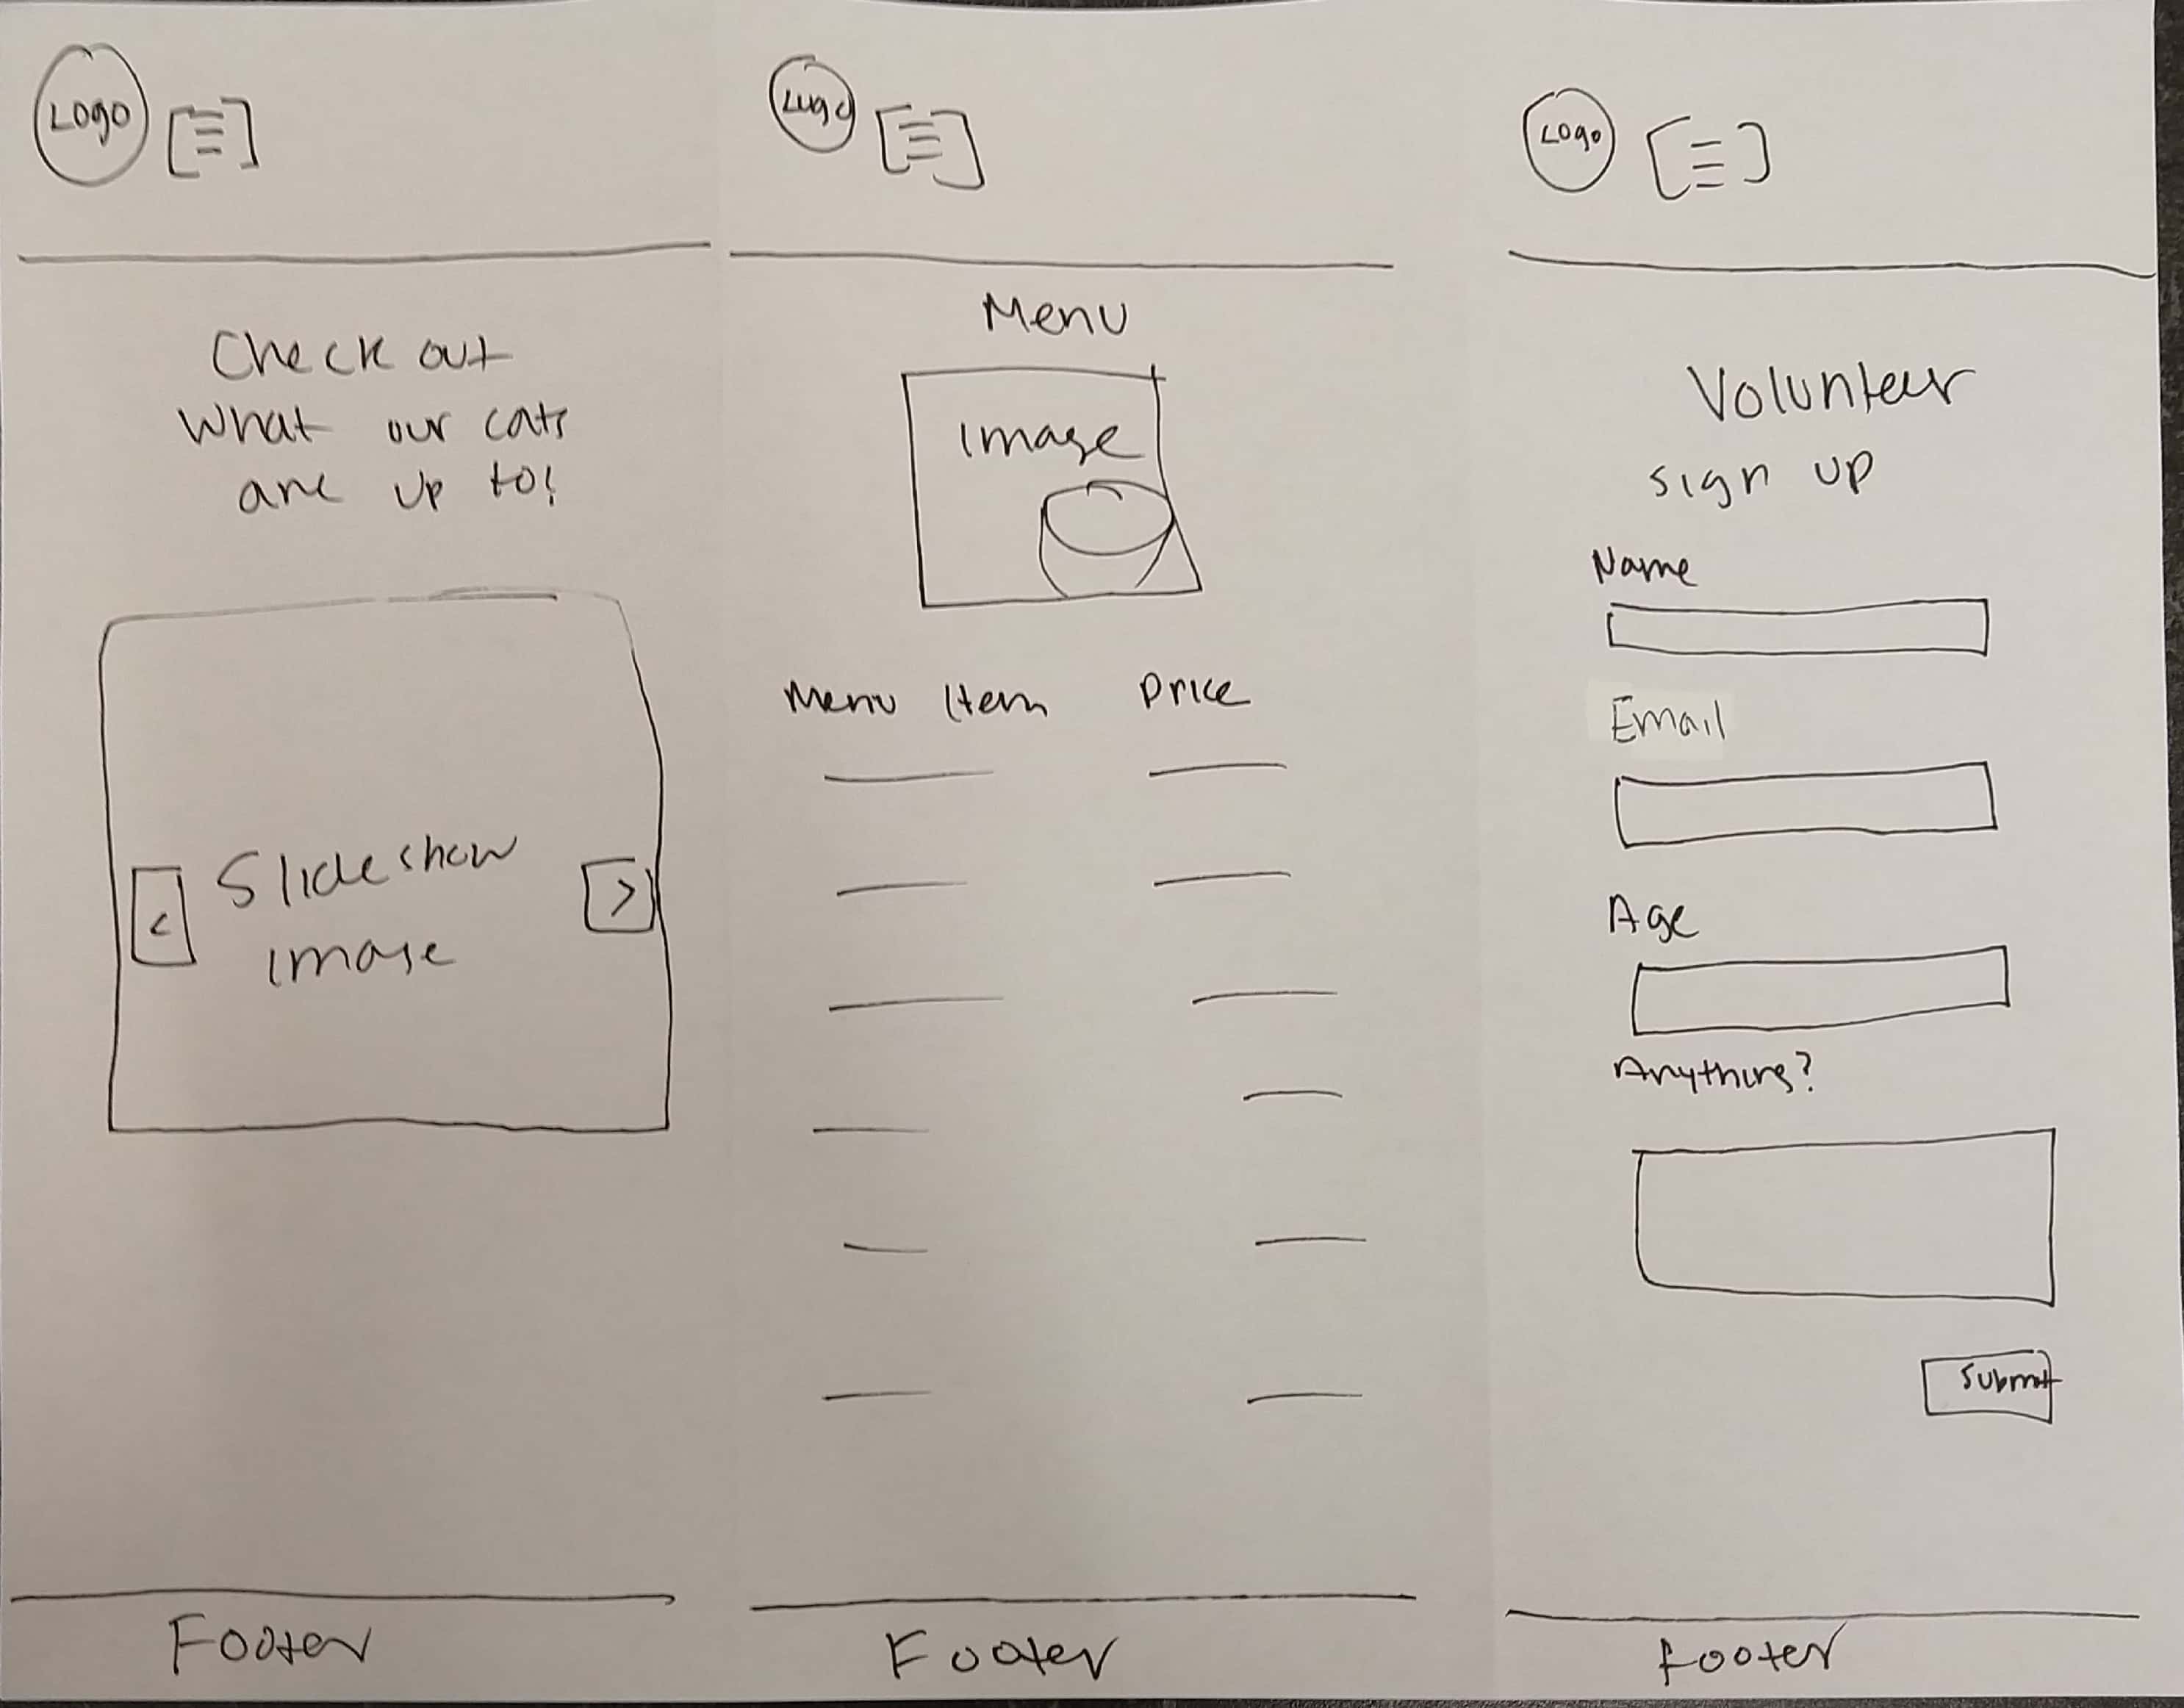 Logo
Check out
what our cats
are up to!
<
Slideshow
image
>
Footer
Logo
Menu
Image
Menu Item Price
Footer
Logo
Volunteer
sign up
Name
Email
Age
Anything?
Submit
footer